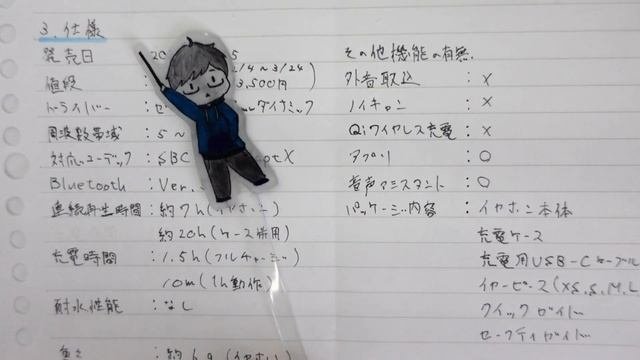 3. 仕様
発売日 : 20 5
/4~3/24)
値段 3,500円
ドライバー : セ ルダイナミック
周波数帯域 : 5~
対応コーデック : SBC ptX
Bluetooth : Ver.
連続再生時間 : 約7h(イヤホン)
約20h(ケース併用)
充電時間 : 1.5h(フルチャージ)
10m(1h動作)
耐水性能 : なし
重さ : 約 g(イヤホン)
その他機能の有無.
外音取込 : ×
ノイキャン : ×
Qiワイヤレス充電 : ×
アプリ : ○
音声アシスタント : ○
パッケージ内容 : イヤホン本体
充電ケース
充電用USB-Cケーブル
イヤーピース(XS,S,M,L
クイックガイド
セーフティガイド